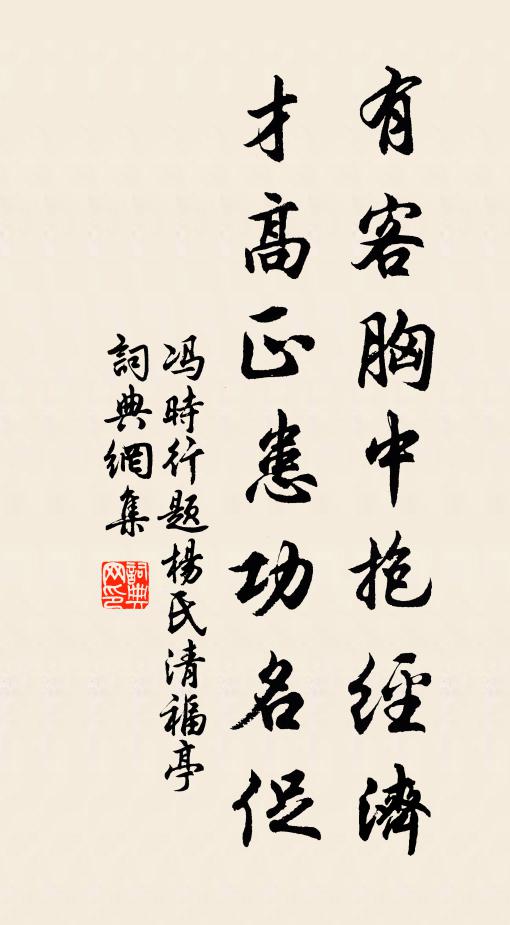 有客胸中抱經濟
才高正患功名促
冯時行题楊氏清福亭
詞典網集
詞典網印